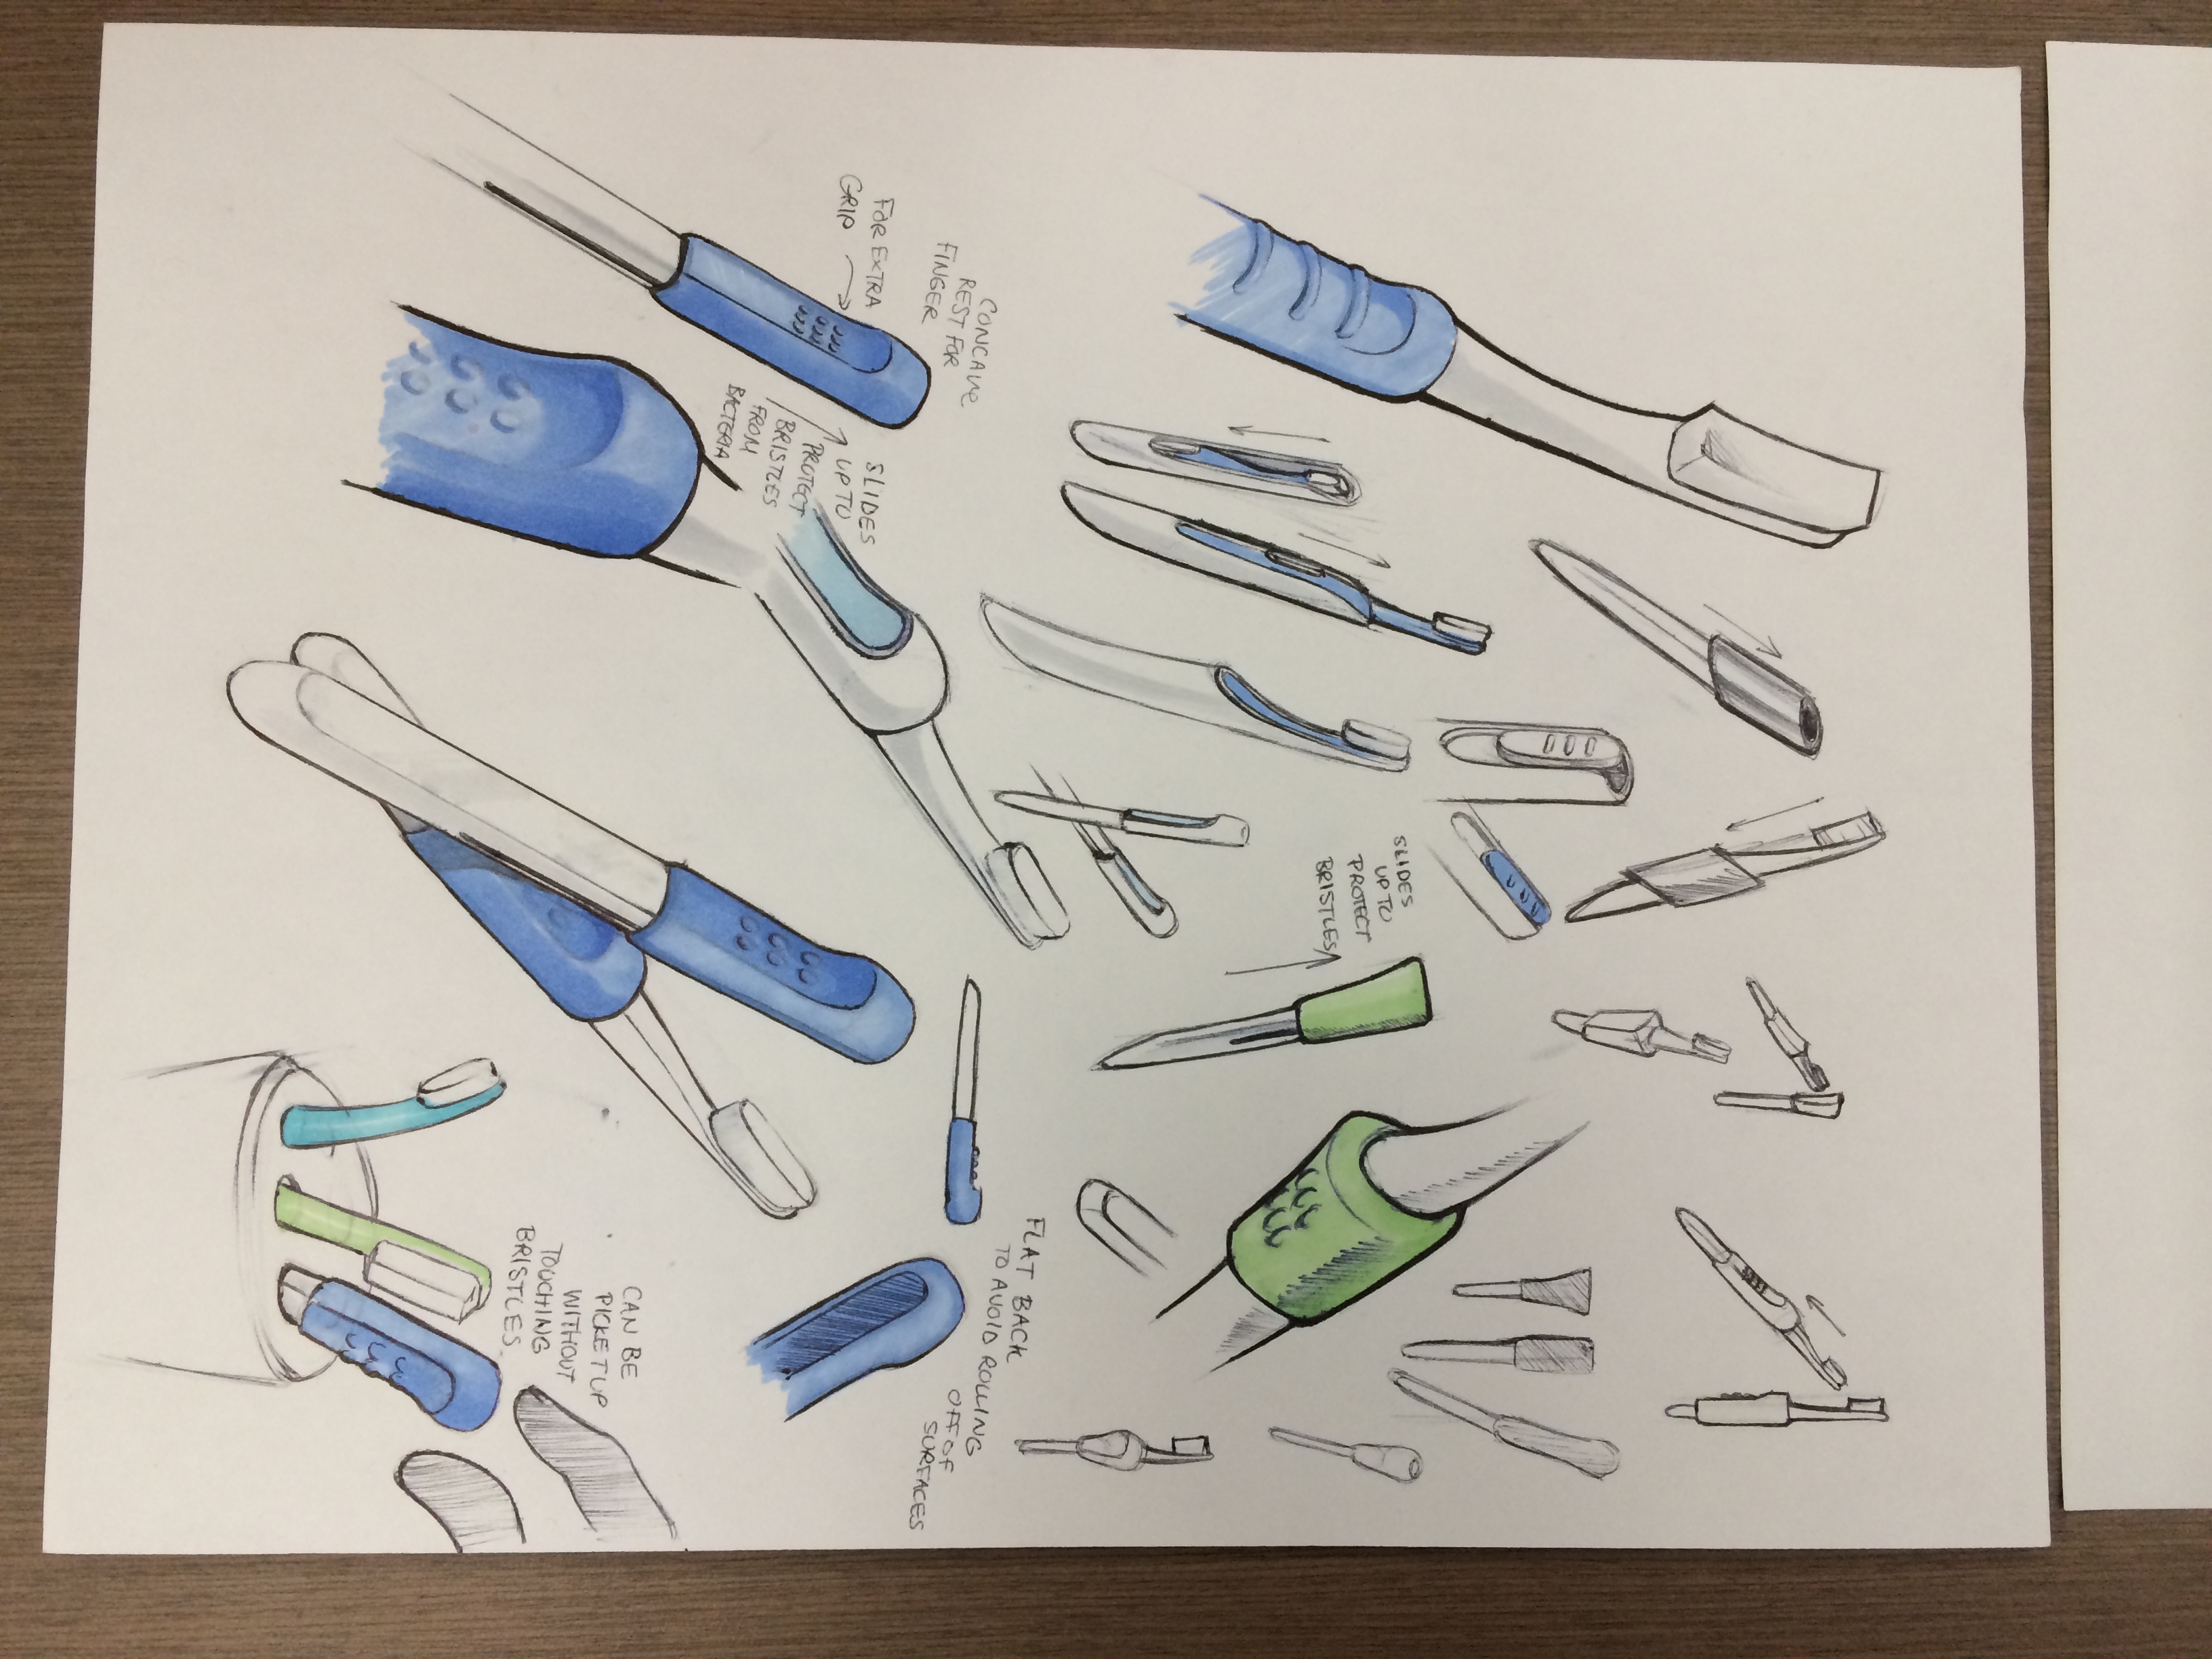 FOR EXTRA
GRIP
CONCAVE
REST FOR
FINGER
SLIDES
UP TO
PROTECT
BRISTLES
FROM
BACTERIA
SLIDES
UP TO
PROTECT
BRISTLES
FLAT BACK
TO AVOID ROLLING
OFF OF
SURFACES
CAN BE
PICKET UP
WITHOUT
TOUCHING
BRISTLES